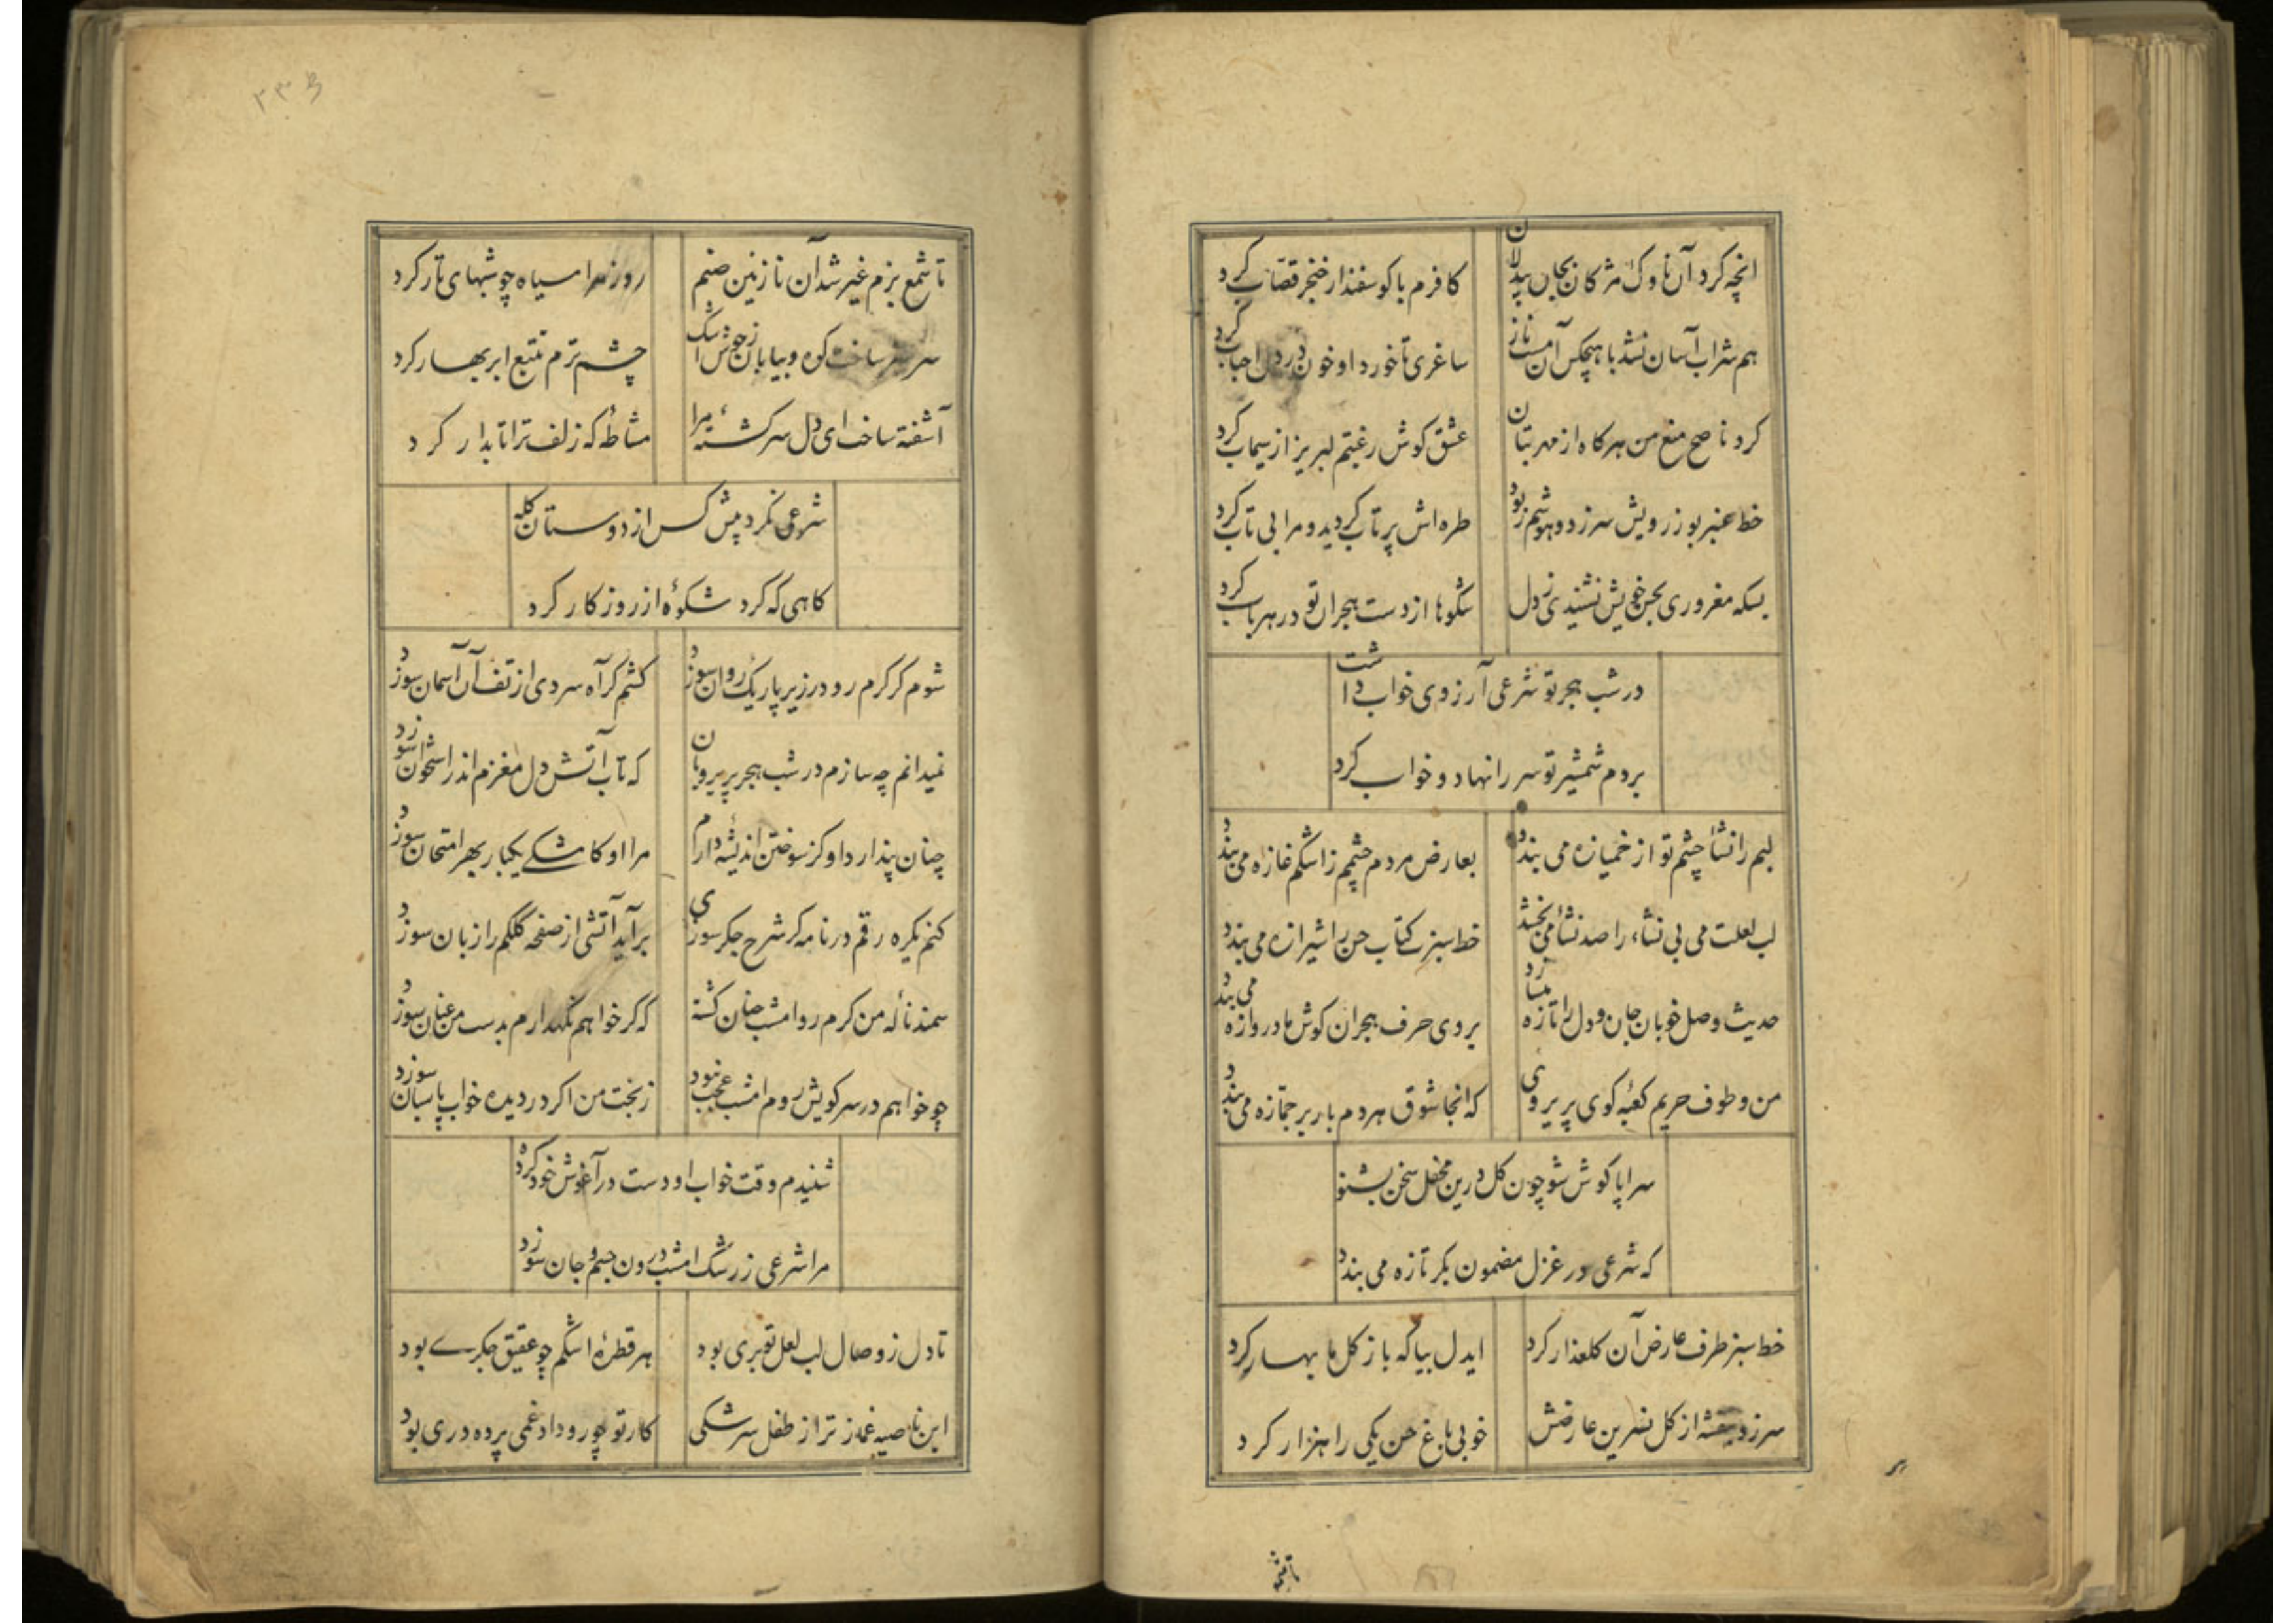 انچه کرد آن ناوک مژکان بجان بیدلان
کافرم با کوسفند ار خنجر قصّاب کرد
هم شراب آسان نشد با هیچکس آن مست ناز
ساغری تا خورد او خون در دل احباب کرد
کرد ناصح منع من هر کاه از مهر بتان
عشق کوش رغبتم لبریز از سیماب کرد
خط عنبر بو ز رویش سر زد و هوشم ربود
طره اش پر تاب کردید و مرا بی تاب کرد
بسکه مغروری بحسن خویش نشنیدی ز دل
شکوها از دست هجران تو در هر باب کرد
در شب هجر تو شرعی آرزوی خواب داشت
بر دم شمشیر تو سر را نهاد و خواب کرد
لبم را نشأ چشم تو از خمیازه می بندد
بعارض مردم چشمم ز اشکم غازه می بندد
لب لعلت می بی نشاء را صد نشأ می بخشد
خط سبزت کتاب حسن را شیرازه می بندد
حدیث وصل خوبان جان و دل را تازه میسازد
بروی حرف هجران کوش ما دروازه می بندد
من و طوف حریم کعبۀ کوی پریرویی
که انجا شوق هر دم بار بر جمّازه می بندد
سراپا کوش شو چون کل درین محفل سخن بشنو
که شرعی در غزل مضمون بکر تازه می بندد
خط سبز طرف عارض آن کلعذار کرد
ایدل بیا که باز کل ما بهار کرد
سر زد بنفشه از کل نسرین عارضش
خوبی باغ حسن یکی را هزار کرد
تا شمع
۲۳۴
تا شمع بزم غیر شد آن نازنین صنم
روز مرا سیاه چو شبهای تار کرد
سر سبز ساخت کوه و بیابان ز جوش اشک
چشم ترم تتبع ابر بهار کرد
آشفته ساخت ای دل سر کشتۀ مرا
مشاطۀ که زلف ترا تابدار کرد
شرعی نکرد پیش کس از دوستان کله
کاهی که کرد شکوۀ از روزکار کرد
شوم کر کرم رو در زیر پا ریک روان سوزد
کشم کر آه سردی از تف آن آسمان سوزد
نمیدانم چه سازم در شب هجر پریرویان
که تاب آتش دل مغزم اندر استخوان سوزد
چنان پندارد او کز سوختن اندیشۀ دارم
مرا او کاشکے یکبار بهر امتحان سوزد
کنم یکره رقم در نامه کر شرح جکر سوزی
برآید آتشی از صفحه کلکم را زبان سوزد
سمند نالۀ من کرم رو امشب چنان کشته
که کر خواهم نکهدارم بدست من عنان سوزد
چو خواهم در سر کویش روم امشب عجب نبود
ز بخت من اکر در دیده خواب پاسبان سوزد
شنیدم وقت خواب او دست در آغوش خود کرده
مرا شرعی ز رشک امشب درون جسم و جان سوزد
تا دل ز وصال لب لعل تو بری بود
هر قطرۀ اشکم چو عقیق جکرے بود
این ناصیه غماز تر از طفل سرشکی
کار تو چو رو داد غمی پرده دری بود